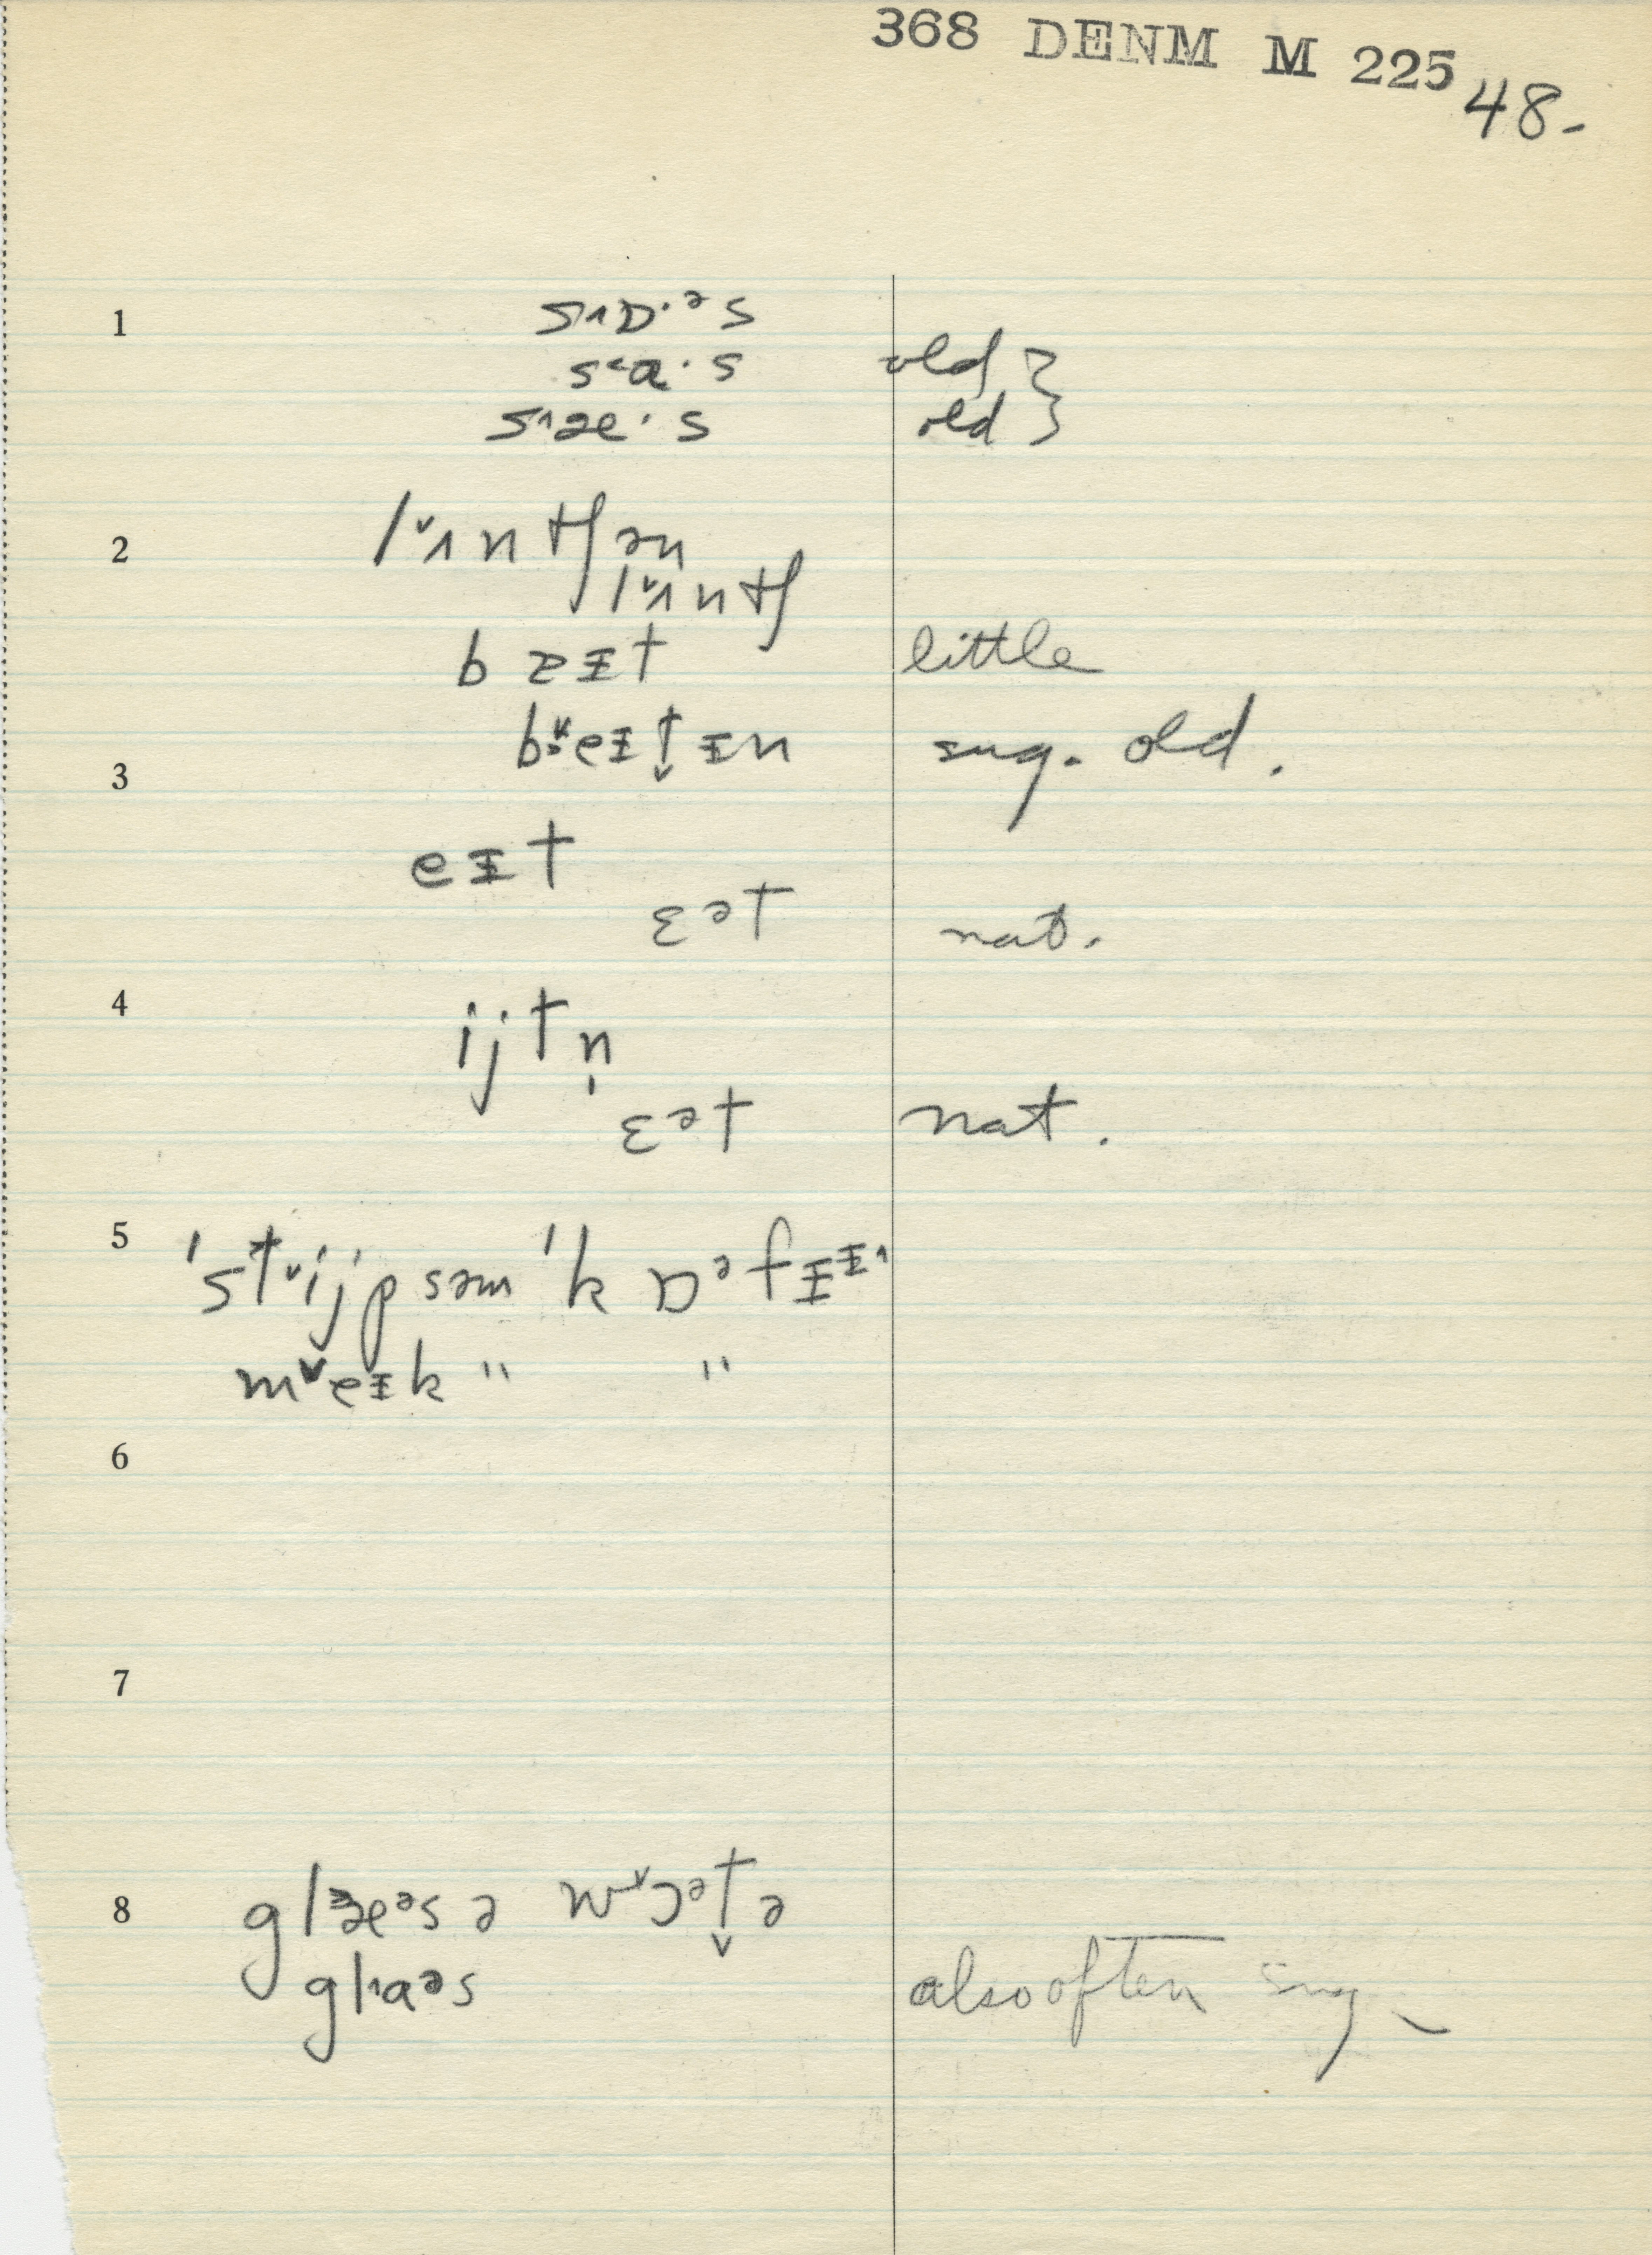 368 DENM M 225
48-
1
s˄ɒ·ᵊs
s˂a·s old }
s˄æ·s old }
2
l˅˄ntʃən
l˅˄ntʃ
bɪt little
b eɪt̬ɪn sug. old.
3
eɪt
ɛᵊt nat.
4
ijtn̩
ɛᵊt nat.
5
ˈst˅ijpsəm ˈkɒᵊfɪ
m˅eɪk " "
6
7
8
glæᵊs ə w˅ɔᵊt̬ə
gl˄aᵊs also often sug.